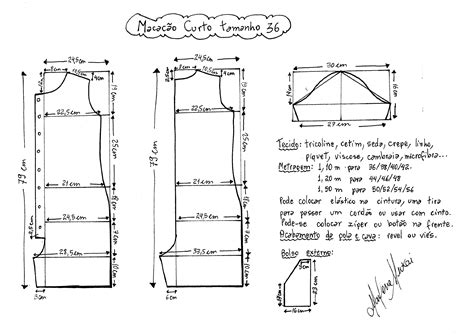 Macacão Curto tamanho 36
24,5cm
24,5cm
30 cm
79 cm
22,5cm
25cm
21 cm
24,5cm
28,5cm
3cm
79 cm
22,5cm
25cm
21cm
24,5cm
32,5cm
6cm
16cm
27 cm
Tecido: tricoline, cetim, seda, crepe, linho,
piquet, viscose, cambraia, microfibra...
Metragem: 1,10 m para 36/38/40/42.
1,20 m para 44/46/48
1,50 m para 50/52/54/56
Pode colocar elástico na cintura, uma tira
para passar um cordão ou usar com cinto.
Pode-se colocar zíper ou botão na frente.
Acabamento de gola e cava: revel ou viés.
Bolso externo:
16cm